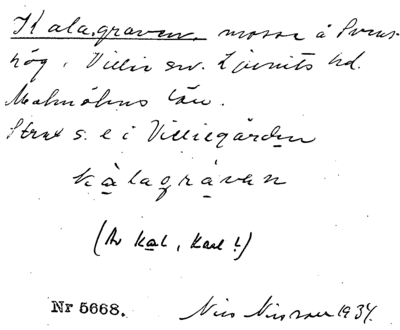 Kalagraven, mosse å Svens-
hög i Villie sn. Ljunits hd.
Malmöhus län.
Strax s. e i Villiegården
kàlagráven
(Av Kal, Karl?)
Nr 5668. Nils Nilsson 1934.